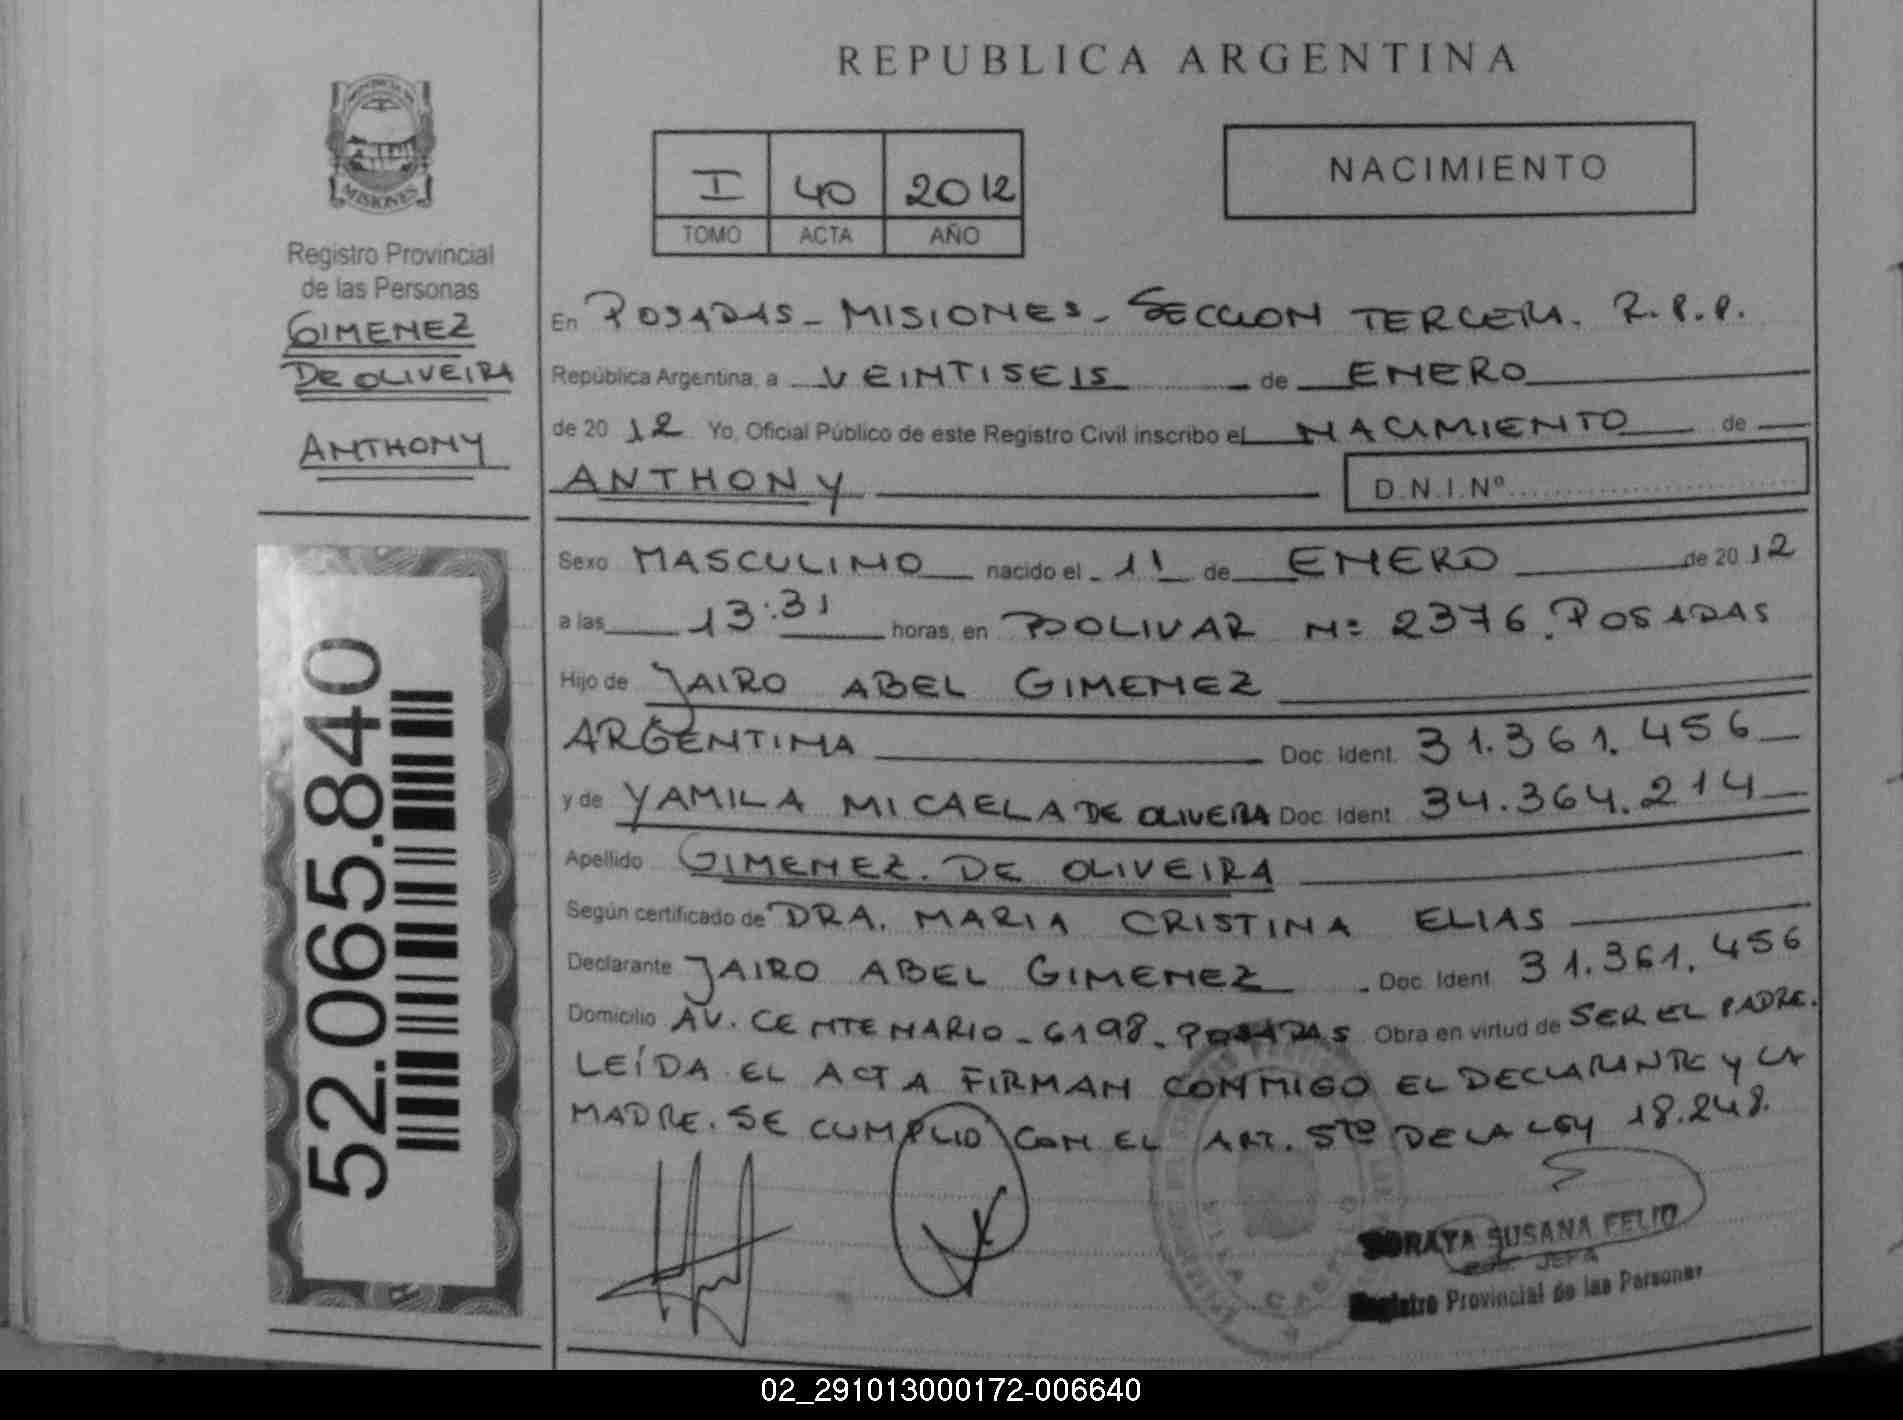 REPUBLICA ARGENTINA
MISIONES
Registro Provincial
de las Personas
GIMENEZ
DE OLIVEIRA
ANTHONY
52.065.840
I 40 2012
TOMO ACTA AÑO
NACIMIENTO
En POSADAS - MISIONES - SECCION TERCERA. R.P.P.
República Argentina, a VEINTISEIS de ENERO
de 20 12 Yo, Oficial Público de este Registro Civil inscribo el NACIMIENTO de
ANTHONY D.N.I.Nº
Sexo MASCULINO nacido el 11 de ENERO de 20 12
a las 13:31 horas, en BOLIVAR Nº 2376. POSADAS
Hijo de JAIRO ABEL GIMENEZ
ARGENTINA Doc. Ident. 31.361.456
y de YAMILA MICAELA DE OLIVEIRA Doc. Ident. 34.364.214
Apellido GIMENEZ. DE OLIVEIRA
Según certificado de DRA. MARIA CRISTINA ELIAS
Declarante JAIRO ABEL GIMENEZ . Doc. Ident. 31.361.456
Domicilio AV. CENTENARIO - 6198 - POSADAS Obra en virtud de SER EL PADRE.
LEÍDA EL ACTA FIRMAN CONMIGO EL DECLARANTE Y LA
MADRE. SE CUMPLIO CON EL ART. 5TO DE LA LEY 18.248.
SORAYA SUSANA FELIO
JEFA
Registro Provincial de las Personas
02_291013000172-006640